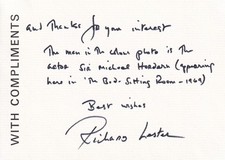 WITH COMPLIMENTS
and Thanks for your interest
The man in the above photo is the
actor Sir Michael Hordern (appearing
here in 'The Bed-Sitting Room - 1969)
Best wishes
Richard Lester